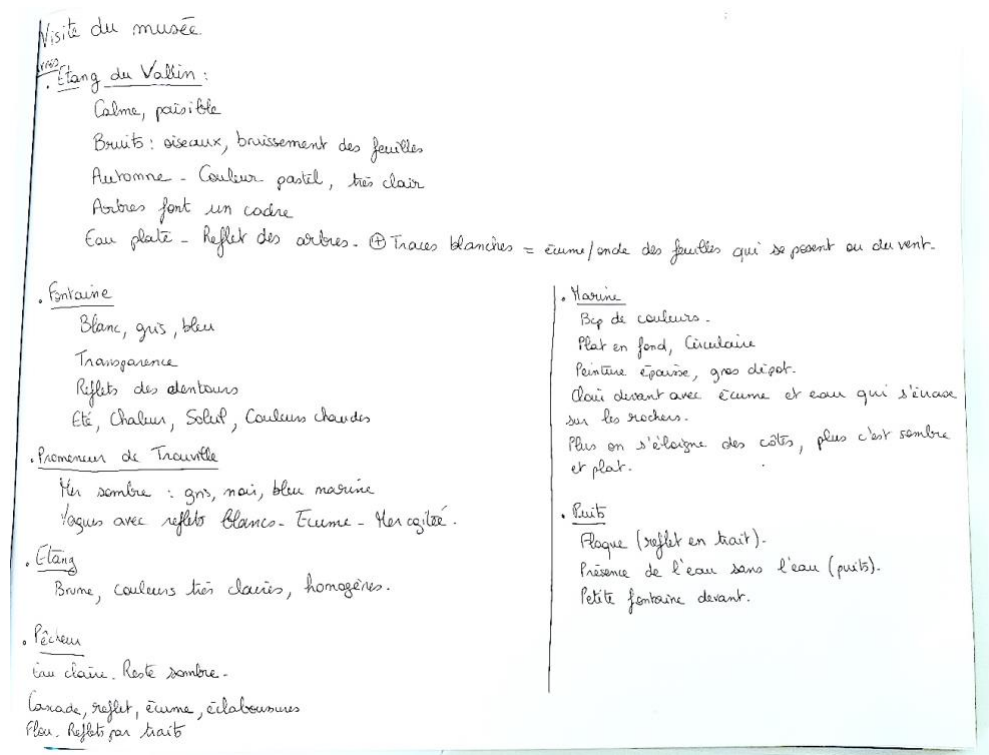 Visite du musée
. Etang du Vallin :
Calme, paisible
Bruits : oiseaux, bruissement des feuilles
Automne - Couleur pastel, très clair
Arbres font un cadre
Eau plate - Reflet des arbres. ⊕ Traces blanches = écume/onde des feuilles qui se posent ou du vent.
. Fontaine
Blanc, gris, bleu
Transparence
Reflets des alentours
Eté, Chaleur, Soleil, Couleurs chaudes
. Promeneur de Trouville
Mer sombre : gris, noir, bleu marine
Vagues avec reflets blancs - Ecume - Mer agitée.
. Etang
Brume, couleurs très claires, homogènes.
. Pêcheur
Eau claire. Reste sombre.
Cascade, reflet, écume, éclaboussures
Flou. Reflets par traits
. Marine
Bcp de couleurs.
Plat en fond, Circulaire
Peinture épaisse, gros dépot.
Clair devant avec écume et eau qui s'écrase
sur les rochers.
Plus on s'éloigne des côtes, plus c'est sombre
et plat.
. Puits
Flaque (reflet en trait).
Présence de l'eau sans l'eau (puits).
Petite fontaine devant.